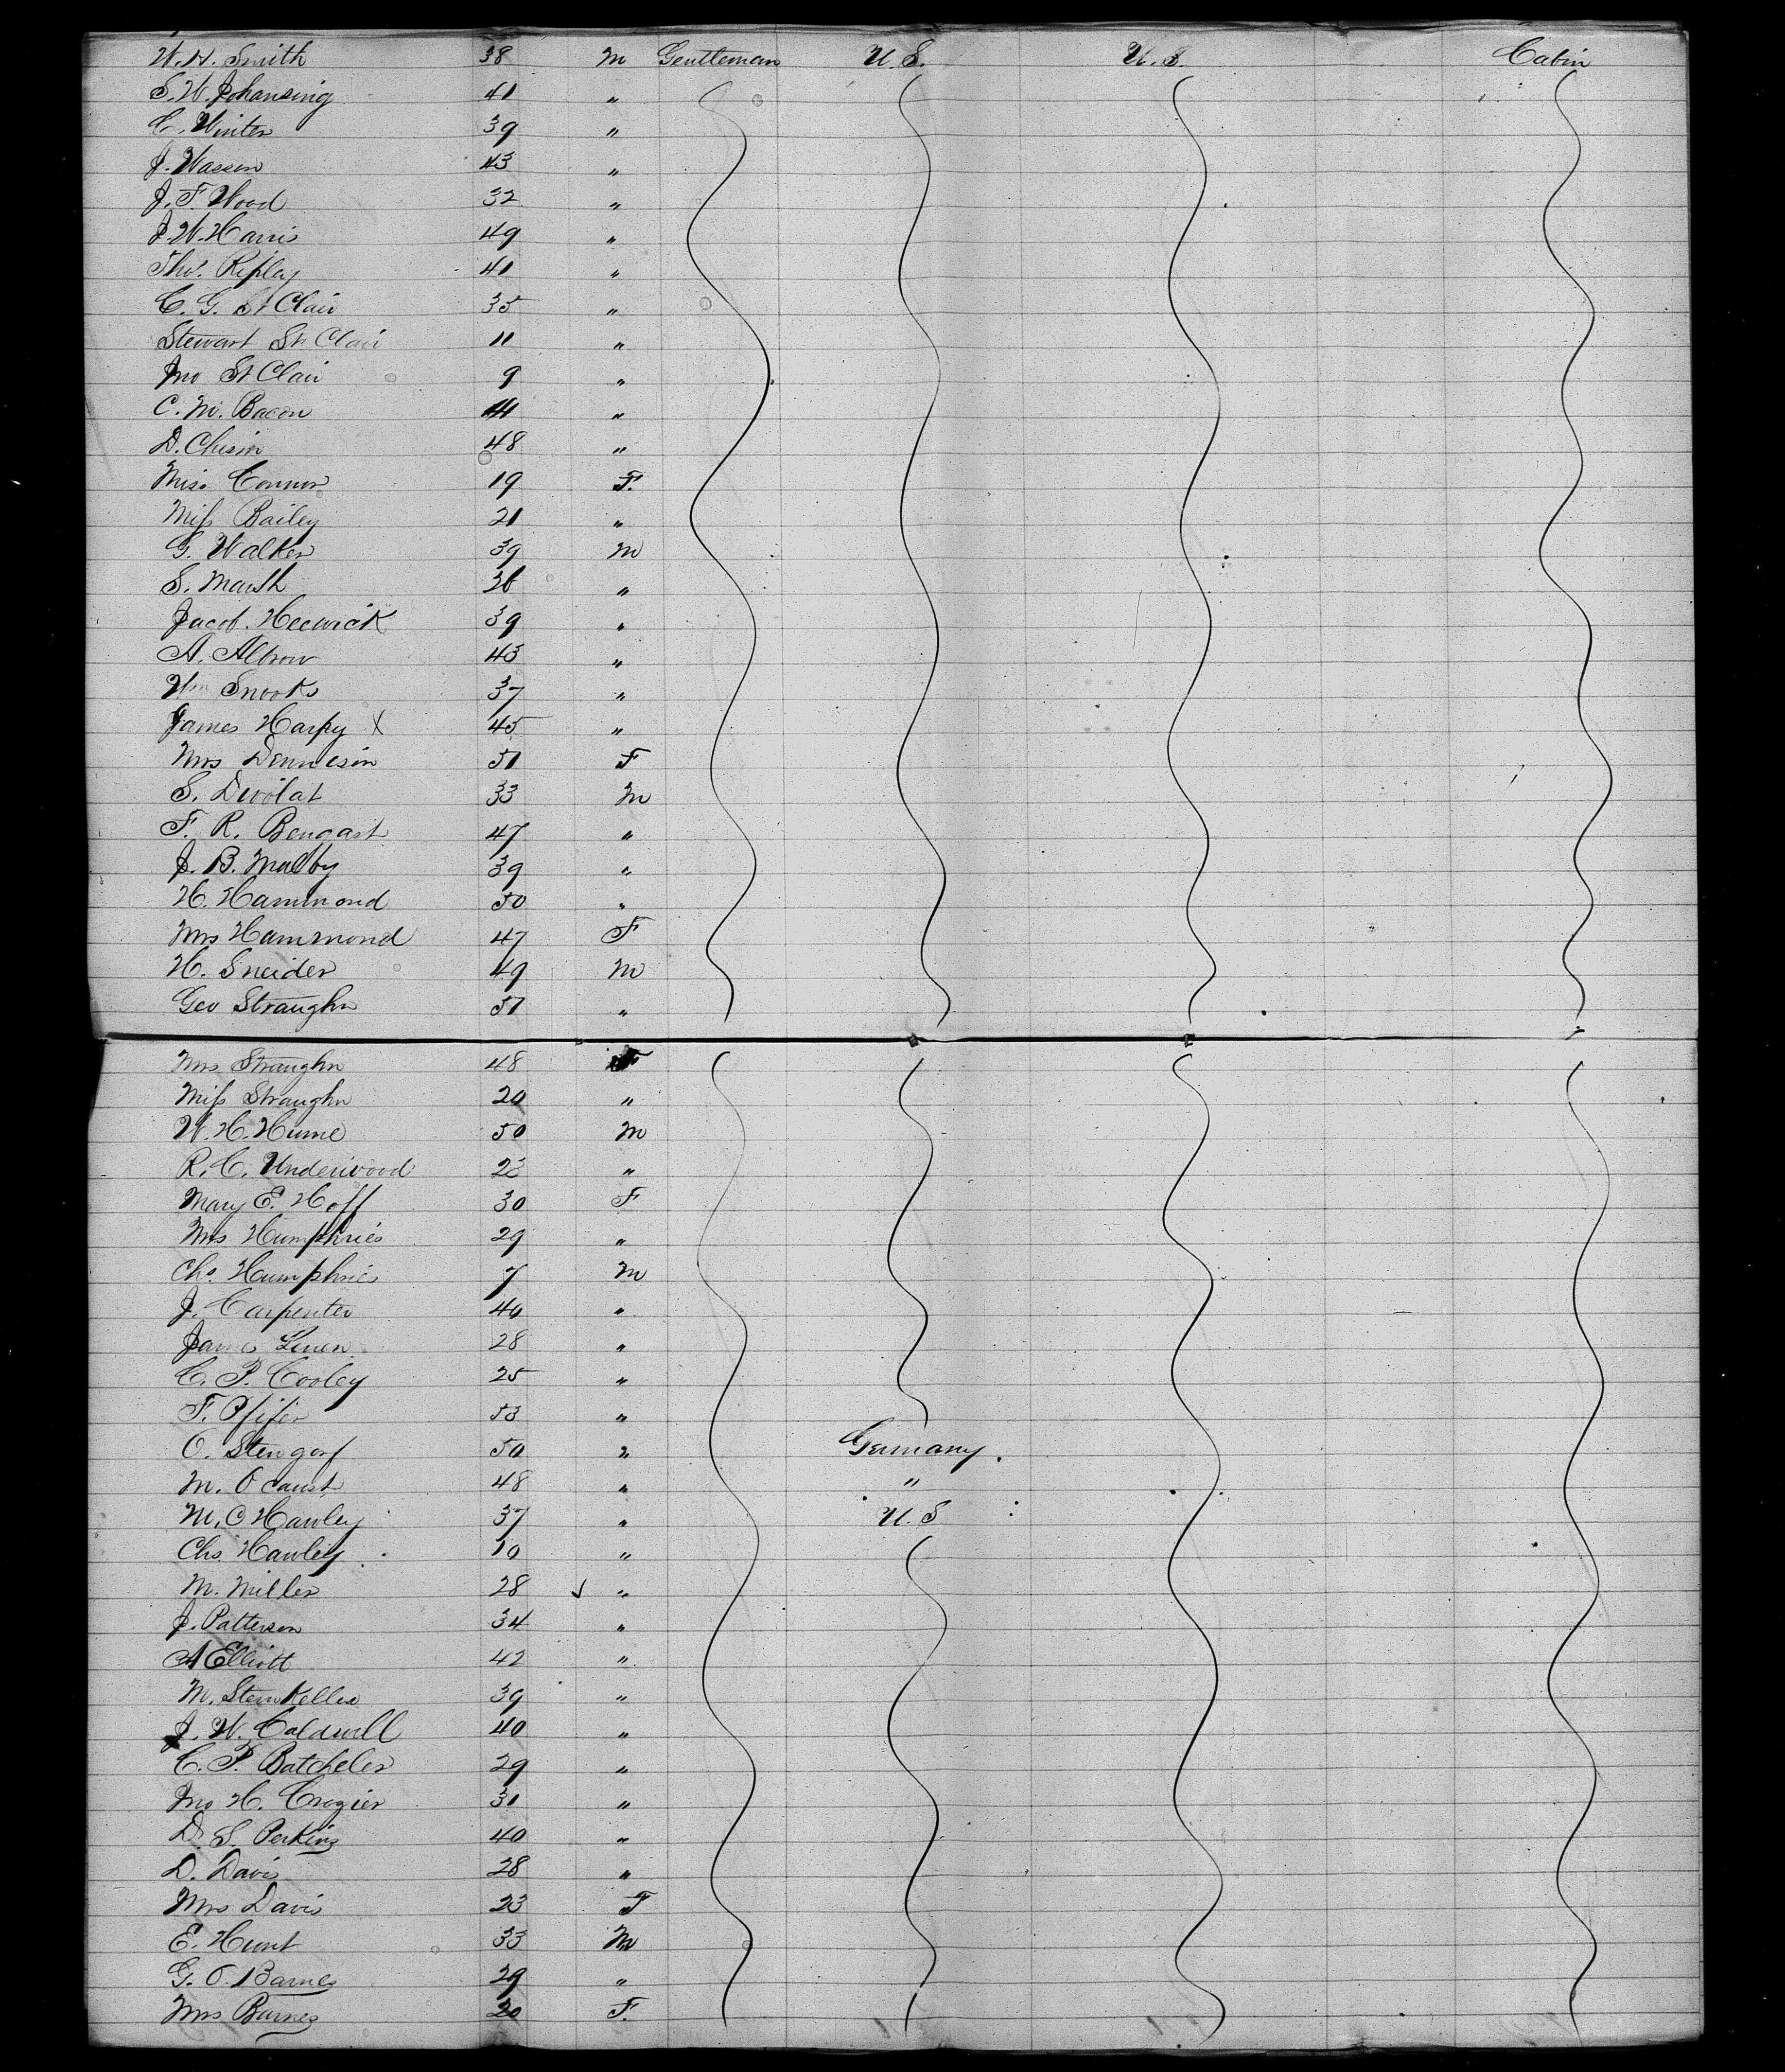 W. H. Smith 38 M Gentleman U. S. U. S. Cabin
S. W. Johansing 41 "
C. Winter 39 "
J. Wasson 43 "
J. F. Wood 32 "
J. W. Harris 49 "
Thos. Ripley 41 "
C. G. St Clair 35 "
Stewart St Clair 11 "
Jno St Clair 9 "
C. M. Bacon "
D. Chism 48 "
Miss Connor 19 F.
Miss Bailey 21 "
G. Walker 39 M
S. Marsh 36 "
Jacob 39 "
A. Albrow 43 "
Wm Snooks 37 "
James Harpy X 45 "
Mrs Dennison 51 F
S. Divolat 33 M
F. R. Bengast 47 "
J. B. Maltby 39 "
H. Hammond 50 "
Mrs Hammond 47 F
H. Sneider 49 M
Geo Straughn 51 "
Mrs Straughn 48 F
Miss Straughn 20 "
W. H. Hume 50 M
R. C. Underwood 23 "
Mary E. Hoff 30 F
Mrs Humphries 29 "
Chs. Humphries 7 M
J. Carpenter 40 "
James Linen 28 "
C. P. Cooley 25 "
F. Pfifer 53 "
O. Stengorf 50 " Germany.
M. 48 " "
M. C Hawley 37 " U. S
Chs. Hawley 10 "
M. Miller 28 "
J. Patterson 34 "
A Elliott 42 "
M. Steinkeller 39 "
J. W. Caldwell 40 "
C. P. Batcheler 29 "
Jno H. Crozier 31 "
D. S. Perkins 40 "
D. Davis 28 "
Mrs Davis 23 F
E. Hunt 33 M
G. O. Barnes 29 "
Mrs Barnes 20 F.